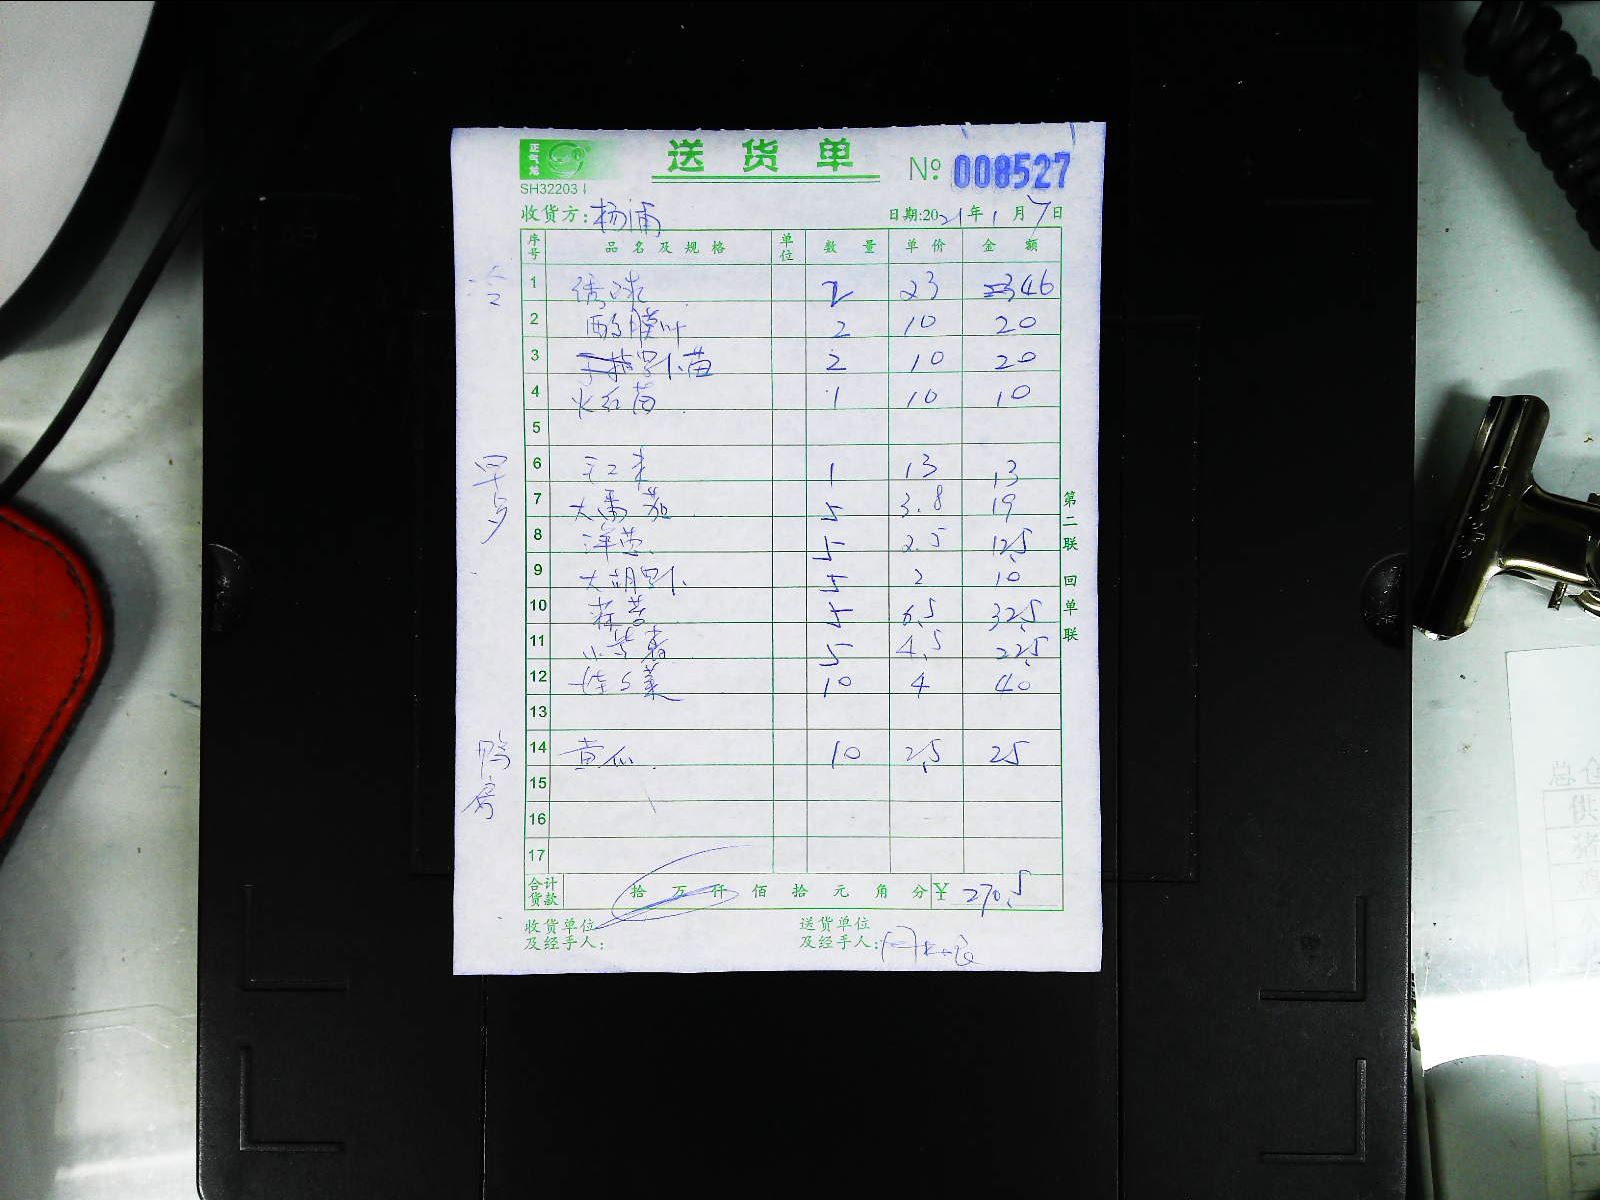 正气龙
SH32203
送货单
№ 008527
收货方:杨浦
日期:2021年1月7日
序号 品名及规格 单位 数量 单价 金额
冷
1 绣球 2 23 46
2 酸膜叶 2 10 20
3 萝卜苗 2 10 20
4 火红苗 1 10 10
5
早点
6 玉米 1 13 13
7 大番茄 5 3.8 19
8 洋葱 5 2.5 12.5
9 大胡萝卜 5 2 10
10 5 6.5 32.5
11 5 4.5 22.5
12 10 4 40
13
鸭房
14 黄瓜 10 2.5 25
15
16
17
合计货款 拾万仟佰拾元角分 ¥ 270.5
收货单位及经手人:
送货单位及经手人:
第二联 回单联